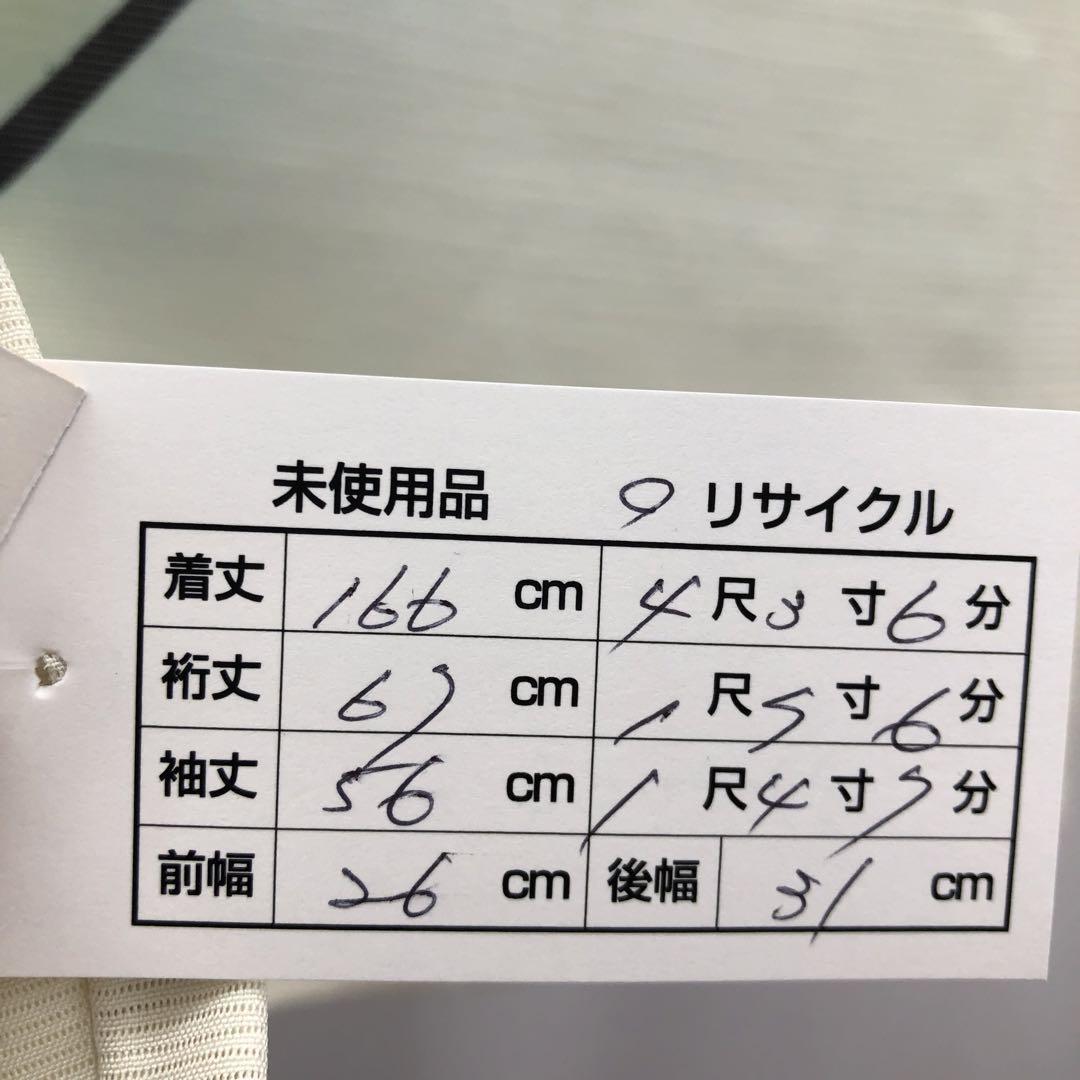 未使用品 ○ リサイクル
着丈 166 cm 4尺3寸6分
裄丈 67 cm 1尺 寸6分
袖丈 56 cm 1尺4寸7分
前幅 26 cm 後幅 31 cm